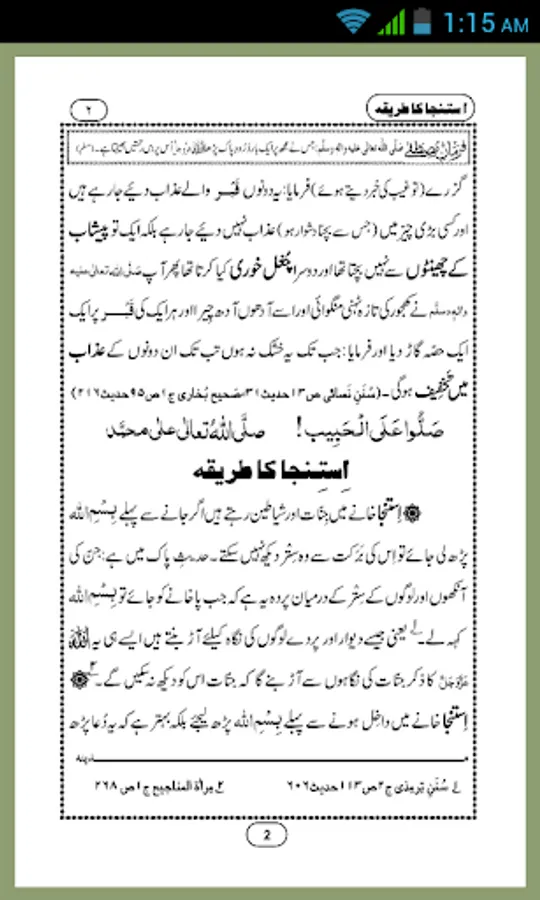 1:15 AM
استنجا کا طریقہ
۲
فرمانِ مصطفےٰ صلَّی اللہ تعالیٰ علیہ والہٖ وسلَّم: جس نے مجھ پر ایک بار دُرُودِ پاک پڑھا اُس پر دس رحمتیں بھیجتا ہے۔ (مسلم)
گزرے (تو غیب کی خبر دیتے ہوئے) فرمایا: یہ دونوں قَبْر والے عذاب دیئے جارہے ہیں
اور کسی بڑی چیز میں (جس سے بچنا دشوار ہو) عذاب نہیں دیئے جارہے بلکہ ایک تو پیشاب
کے چھینٹوں سے نہیں بچتا تھا اور دوسرا چُغل خوری کیا کرتا تھا پھر آپ صلَّی اللہ تعالیٰ علیہ
والہٖ وسلَّم نے کھجور کی تازہ ٹہنی منگوائی اور اسے آدھوں آدھ چیرا اور ہر ایک کی قَبْر پر ایک
ایک حصّہ گاڑ دیا اور فرمایا: جب تک یہ خشک نہ ہوں تب تک ان دونوں کے عذاب
میں تَخْفِیف ہوگی۔ (سُنَنِ نَسائی ص۱۳ حدیث۳۱، صَحیح بُخاری ج۱ ص۹۵ حدیث۲۱۶)
صَلُّوا عَلَی الْحَبِیب! صلَّی اللہُ تعالیٰ علیٰ محمَّد
اِستِنجا کا طریقہ
اِستِنجا خانے میں جِنّات اور شیاطین رہتے ہیں اگر جانے سے پہلے بِسْمِ اللہ
پڑھ لی جائے تو اِس کی بَرَکت سے وہ سِتْر دیکھ نہیں سکتے۔ حدیثِ پاک میں ہے: جن کی
آنکھوں اور لوگوں کے سِتْر کے درمیان پردہ یہ ہے کہ جب پاخانے کو جائے تو بِسْمِ اللہ
کہہ لے۔ ۱؎ یعنی جیسے دیوار اور پردے لوگوں کی نگاہ کیلئے آڑ بنتے ہیں ایسے ہی یہ اللہ
عَزَّوَجَلَّ کا ذکر جنات کی نگاہوں سے آڑ بنے گا کہ جنات اس کو دیکھ نہ سکیں گے۔ ۲؎
اِستِنجا خانے میں داخِل ہونے سے پہلے بِسْمِ اللہ پڑھ لیجئے بلکہ بہتر ہے کہ یہ دُعا پڑھ
مدینہ
۱؎ سُنَنِ تِرمِذی ج۲ ص۱۱۳ حدیث۶۰۶ ۲؎ مِراٰۃ المناجیح ج۱ ص۲۶۸
2